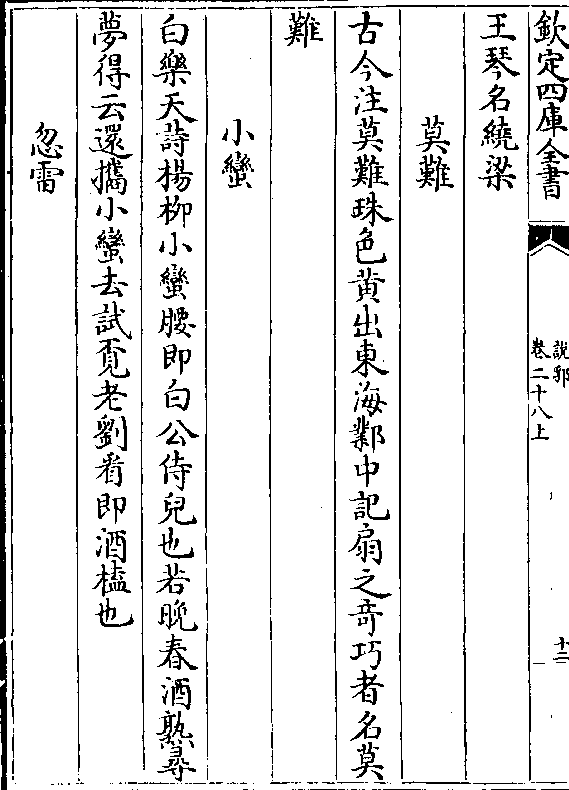 欽定四庫全書
說郛
卷二十八上
十二
王琴名繞梁
莫難
古今注莫難珠色黄出東海鄴中記扇之奇巧者名莫
難
小蠻
白樂天詩楊柳小蠻腰即白公侍兒也若晚春酒熟尋
夢得云還攜小蠻去試覔老劉看即酒榼也
忽雷